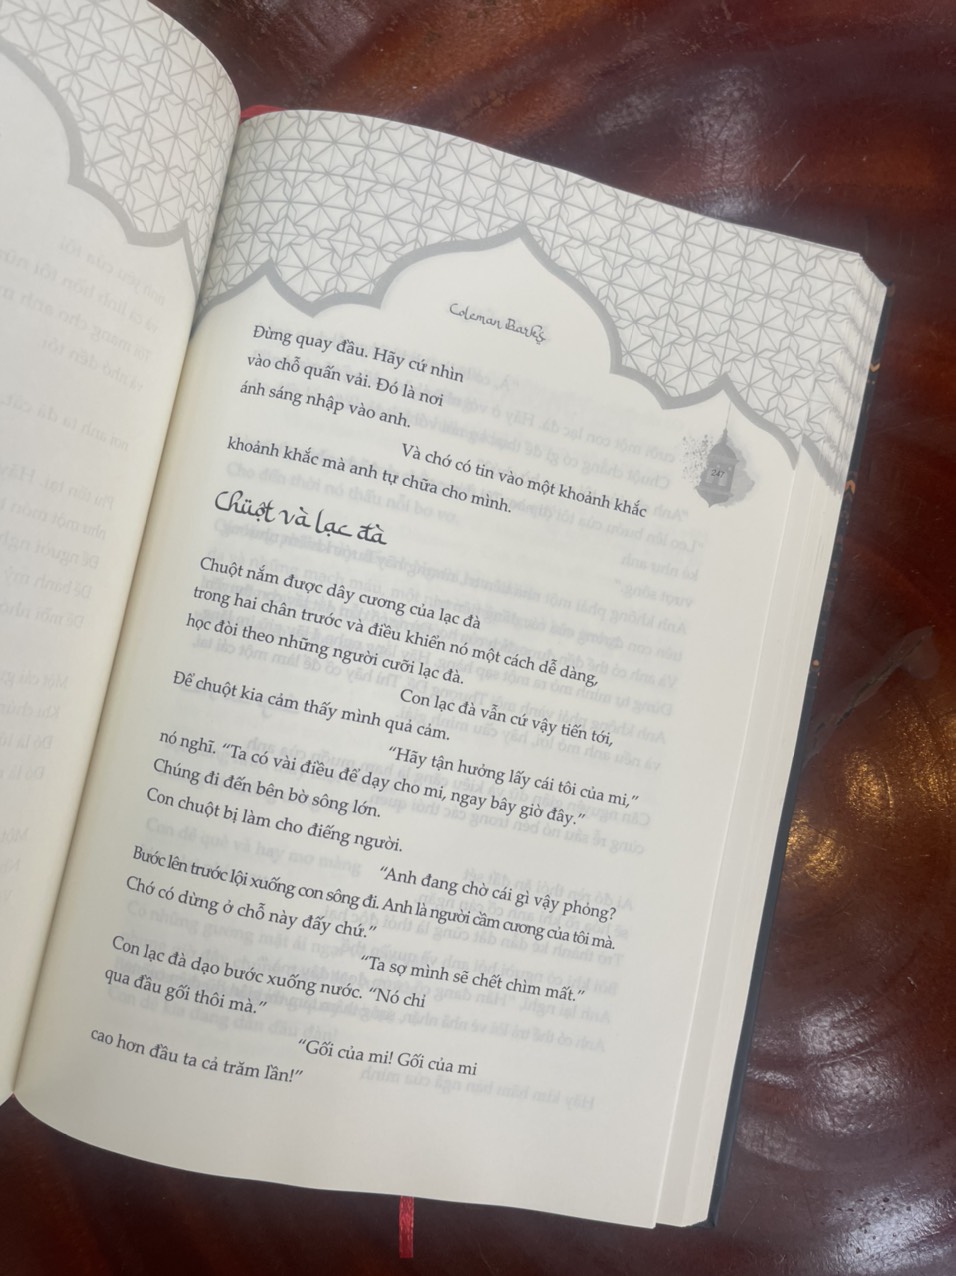 Coleman Barks
Đừng quay đầu. Hãy cứ nhìn
vào chỗ quấn vải. Đó là nơi
ánh sáng nhập vào anh.
Và chớ có tin vào một khoảnh khắc
khoảnh khắc mà anh tự chữa cho mình.
247
Chuột và lạc đà
Chuột nắm được dây cương của lạc đà
trong hai chân trước và điều khiển nó một cách dễ dàng,
học đòi theo những người cưỡi lạc đà.
Con lạc đà vẫn cứ vậy tiến tới,
Để chuột kia cảm thấy mình quả cảm.
“Hãy tận hưởng lấy cái tôi của mi,”
nó nghĩ. “Ta có vài điều để dạy cho mi, ngay bây giờ đây.”
Chúng đi đến bên bờ sông lớn.
Con chuột bị làm cho điếng người.
“Anh đang chờ cái gì vậy phỏng?
Bước lên trước lội xuống con sông đi. Anh là người cầm cương của tôi mà.
Chớ có dừng ở chỗ này đấy chứ.”
“Ta sợ mình sẽ chết chìm mất.”
Con lạc đà dạo bước xuống nước. “Nó chỉ
qua đầu gối thôi mà.”
“Gối của mi! Gối của mi
cao hơn đầu ta cả trăm lần!”